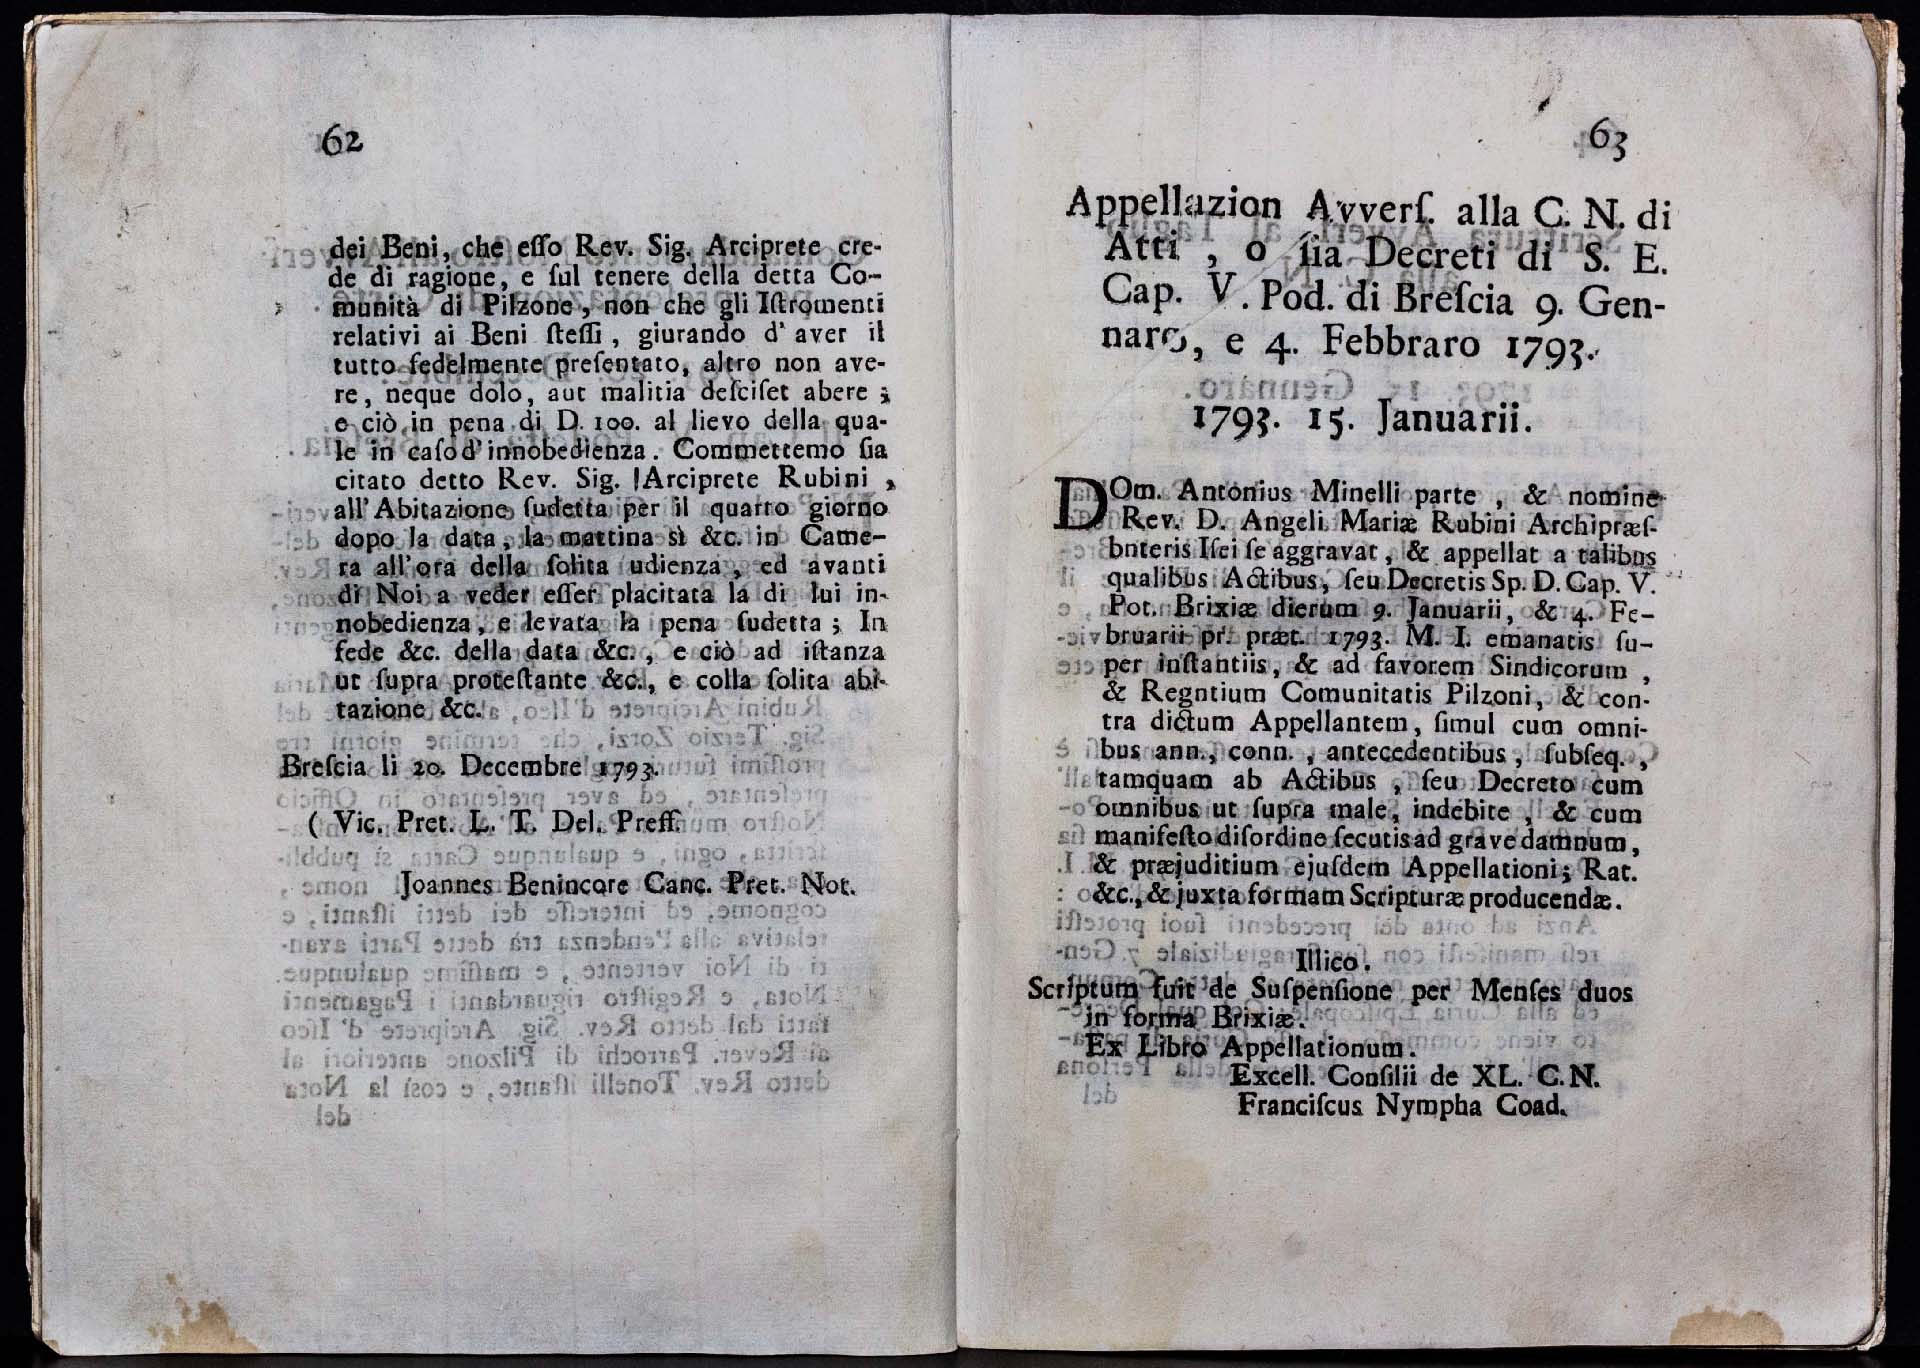 62
dei Beni, che eſſo Rev. Sig. Arciprete cre-
de di ragione, e ſul tenere della detta Co-
munità di Pilzone, non che gli Iſtromenti
relativi ai Beni ſteſſi, giurando d' aver il
tutto fedelmente preſentato, altro non ave-
re, neque dolo, aut malitia deſciſet abere;
e ciò in pena di D. 100. al lievo della qua-
le in caſo d'innobedienza. Commettemo ſia
citato detto Rev. Sig. Arciprete Rubini,
all'Abitazione ſudetta per il quarto giorno
dopo la data, la mattina sì &c. in Came-
ra all'ora della ſolita udienza, ed avanti
di Noi a veder eſſer placitata la di lui in-
nobedienza, e levata la pena ſudetta; In
fede &c. della data &c., e ciò ad iſtanza
ut ſupra proteſtante &c., e colla ſolita abi-
tazione &c.
Breſcia li 20. Decembre 1793.
( Vic. Pret. L. T. Del. Preſſ.
Joannes Benincore Canc. Pret. Not.
63
Appellazion Avverſ. alla C. N. di
Atti, o ſia Decreti di S. E.
Cap. V. Pod. di Breſcia 9. Gen-
naro, e 4. Febbraro 1793.
1793. 15. Januarii.
DOm. Antonius Minelli parte, & nomine
Rev. D. Angeli Mariæ Rubini Archipræſ-
bnteris Iſei ſe aggravat, & appellat a talibus
qualibus Actibus, ſeu Decretis Sp. D. Cap. V.
Pot. Brixiæ dierum 9. Januarii, & 4. Fe-
bruarii pr. præt. 1793. M. I. emanatis ſu-
per inſtantiis, & ad favorem Sindicorum,
& Regntium Comunitatis Pilzoni, & con-
tra dictum Appellantem, ſimul cum omni-
bus ann., conn., antecedentibus, ſubſeq.,
tamquam ab Actibus, ſeu Decreto cum
omnibus ut ſupra male, indebite, & cum
manifeſto diſordine ſecutis ad grave damnum,
& præjuditium ejuſdem Appellationi; Rat.
&c., & juxta formam Scripturæ producendæ.
Illico.
Scriptum fuit de Suſpenſione per Menſes duos
in forma Brixiæ.
Ex Libro Appellationum.
Excell. Conſilii de XL. C. N.
Franciſcus Nympha Coad.